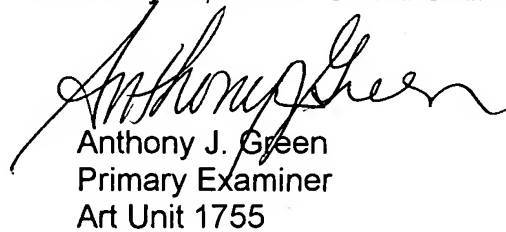 Anthony J. Green
Anthony J. Green
Primary Examiner
Art Unit 1755